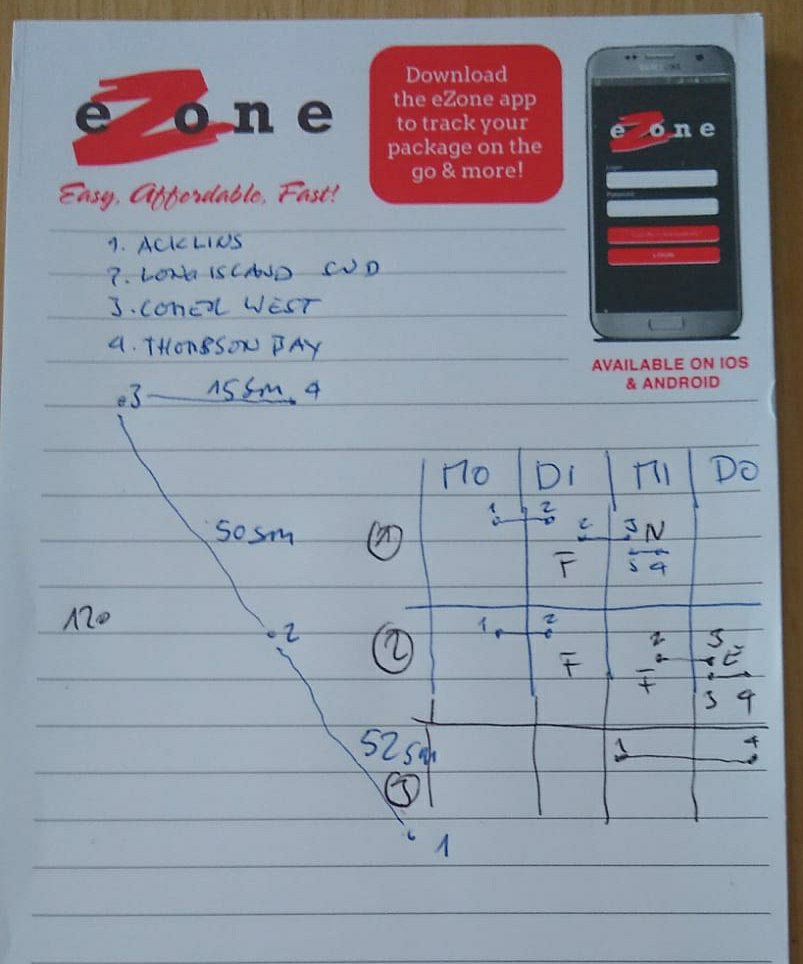 eZone
Easy, Affordable, Fast!
Download
the eZone app
to track your
package on the
go & more!
eZone
LOGIN
AVAILABLE ON IOS
& ANDROID
1. ACKLINS
2. LONG ISLAND SUD
3. COMER WEST
4. THOMBSON BAY
3 15sm 4
50sm
120
2
52sm
1
MO DI MI DO
1 1 2 2 3 N
F 3 4
2 1 2 2 3 E
F F 3 4
3 1 4